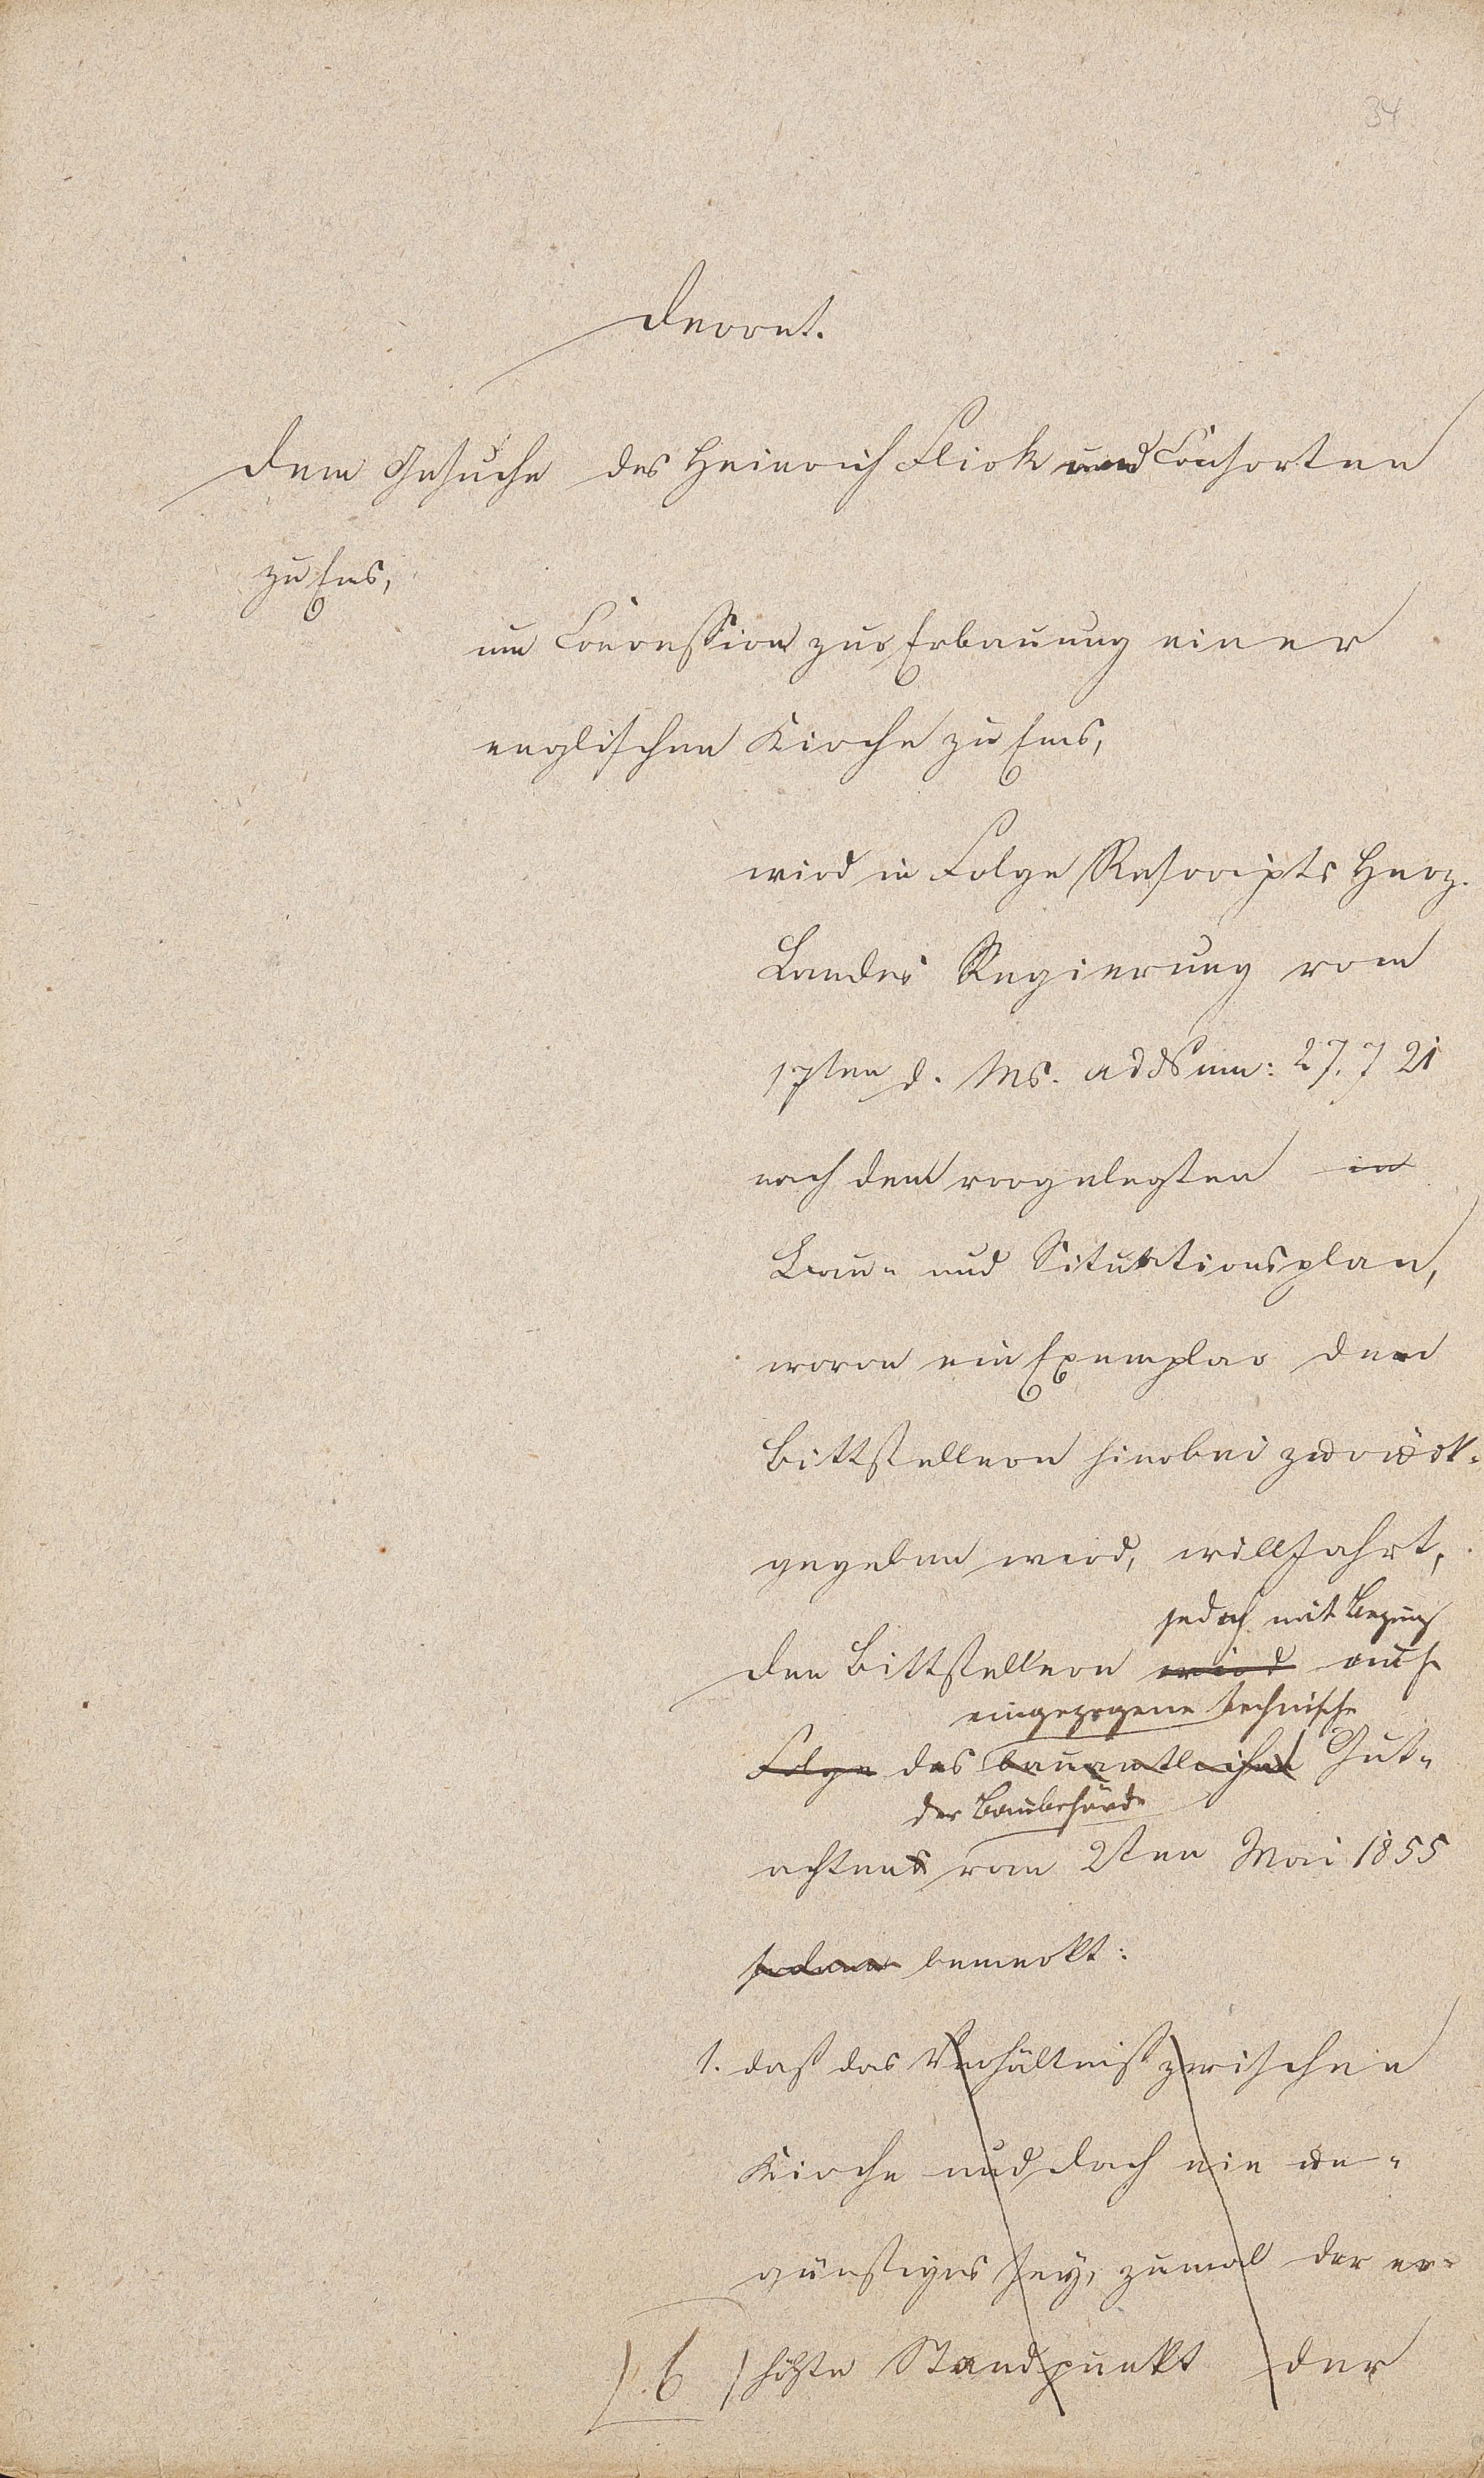 34
Decret.
Dem Gesuche des Heinrich Flick und Consorten
zu Ems,
um Concession zur Erbauung einer
englischen Kirche zu Ems,
wird in Folge Rescripts Herz.
Landes Regierung vom
17ten d. Ms. ad Num: 27,721
nach dem vorgelegten in
Bau- und Situationsplan,
wovon ein Exemplar den
Bittstellern hierbei zurück-
gegeben wird, willfahrt,
jedoch mit Bezug
den Bittstellern wird auf
eingezogene technische
Folge des bauamtlichen Gut-
der Baubehörde
achtens vom 2ten Mai 1855
bemerkt:
1. daß das Verhältniß zwischen
Kirche und Dach ein un-
günstiges sey, zumal der er-
höhte Standpunkt der